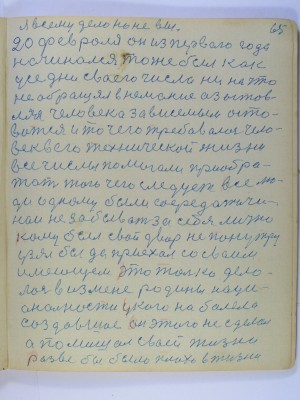 65
всему дело но не вы.
20 февраля он из первого года
начинался тоже был как
все дни своего числа ни на что
не обращял внемание а
ля человека зависемым
и то чего требавалог чело-
веквего технической жизни
все числы помогали приобра-
тат того чего следует все лю-
ди одному были
не забыват за себя лично
кому был свой двар не
да приехал со своим
имеющем это только дело-
лос в измене родины наци-
оналности у кого на балело
создавшае он этого не сделал
а помишал своей жизни
разве бы было плохо в жизни